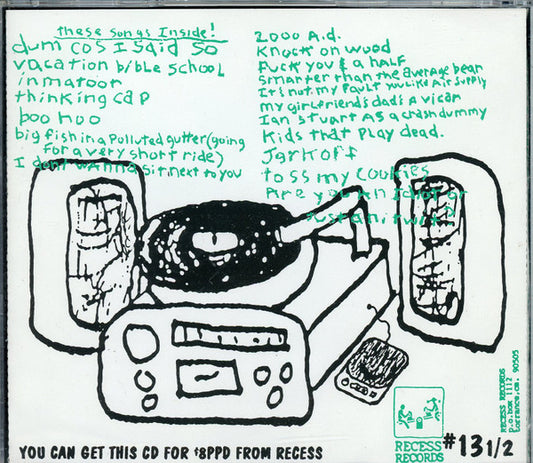 these songs Inside!
dum cos I said so
vacation bible school
inmatoor
thinking cap
boo hoo
big fish in a polluted gutter (going
for a very short ride)
I dont wanna sit next to you
2000 A.d.
Knock on wood
Fuck you & a HALF
Smarter than the average bear
It's not my fault you like Air Supply
my girlfriends dad's A vicar
Ian Stuart AS a crash dummy
Kids that Play dead.
Jerkoff
toss my cookies
Are you An Idiot or
just an twit
YOU CAN GET THIS CD FOR $8PPD FROM RECESS
RECESS
RECORDS
#13 1/2
RECESS RECORDS
p.o. box 1112
torrance, ca. 90505